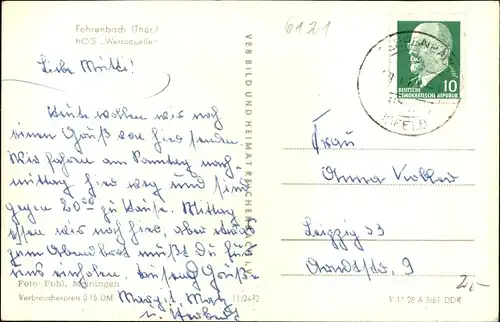 Fehrenbach (Thür.)
HOG „Werraquelle"
6121
Liebe Mutti!
Heute wollen wir noch
einen Gruß von hier senden.
Wir fahren am Sonntag nach-
mittag hier weg und sind
gegen 20⁰⁰ zu Hause. Mittag
essen wir noch hier, aber
zum Abendbrot mußt Du für
uns einholen. Tausend Grüße
Margit,
u. Herbert
Foto: Pohl, Meiningen
Verbraucherpreis 0.15 DM
11/2472
VEB BILD UND HEIMAT REICHENBACH I. V.
DEUTSCHE
DEMOKRATISCHE REPUBLIK
10
Frau
Anna
Leipzig 53
Arndtstr. 9
V 11 28 A 3/61 DDR
2,-